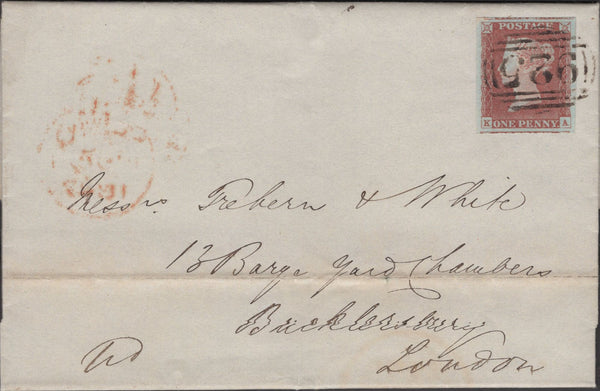 POSTAGE
K ONE PENNY A
925
Messrs Trehern & White
13 Barge Yard Chambers
Bucklersbury
Pd London